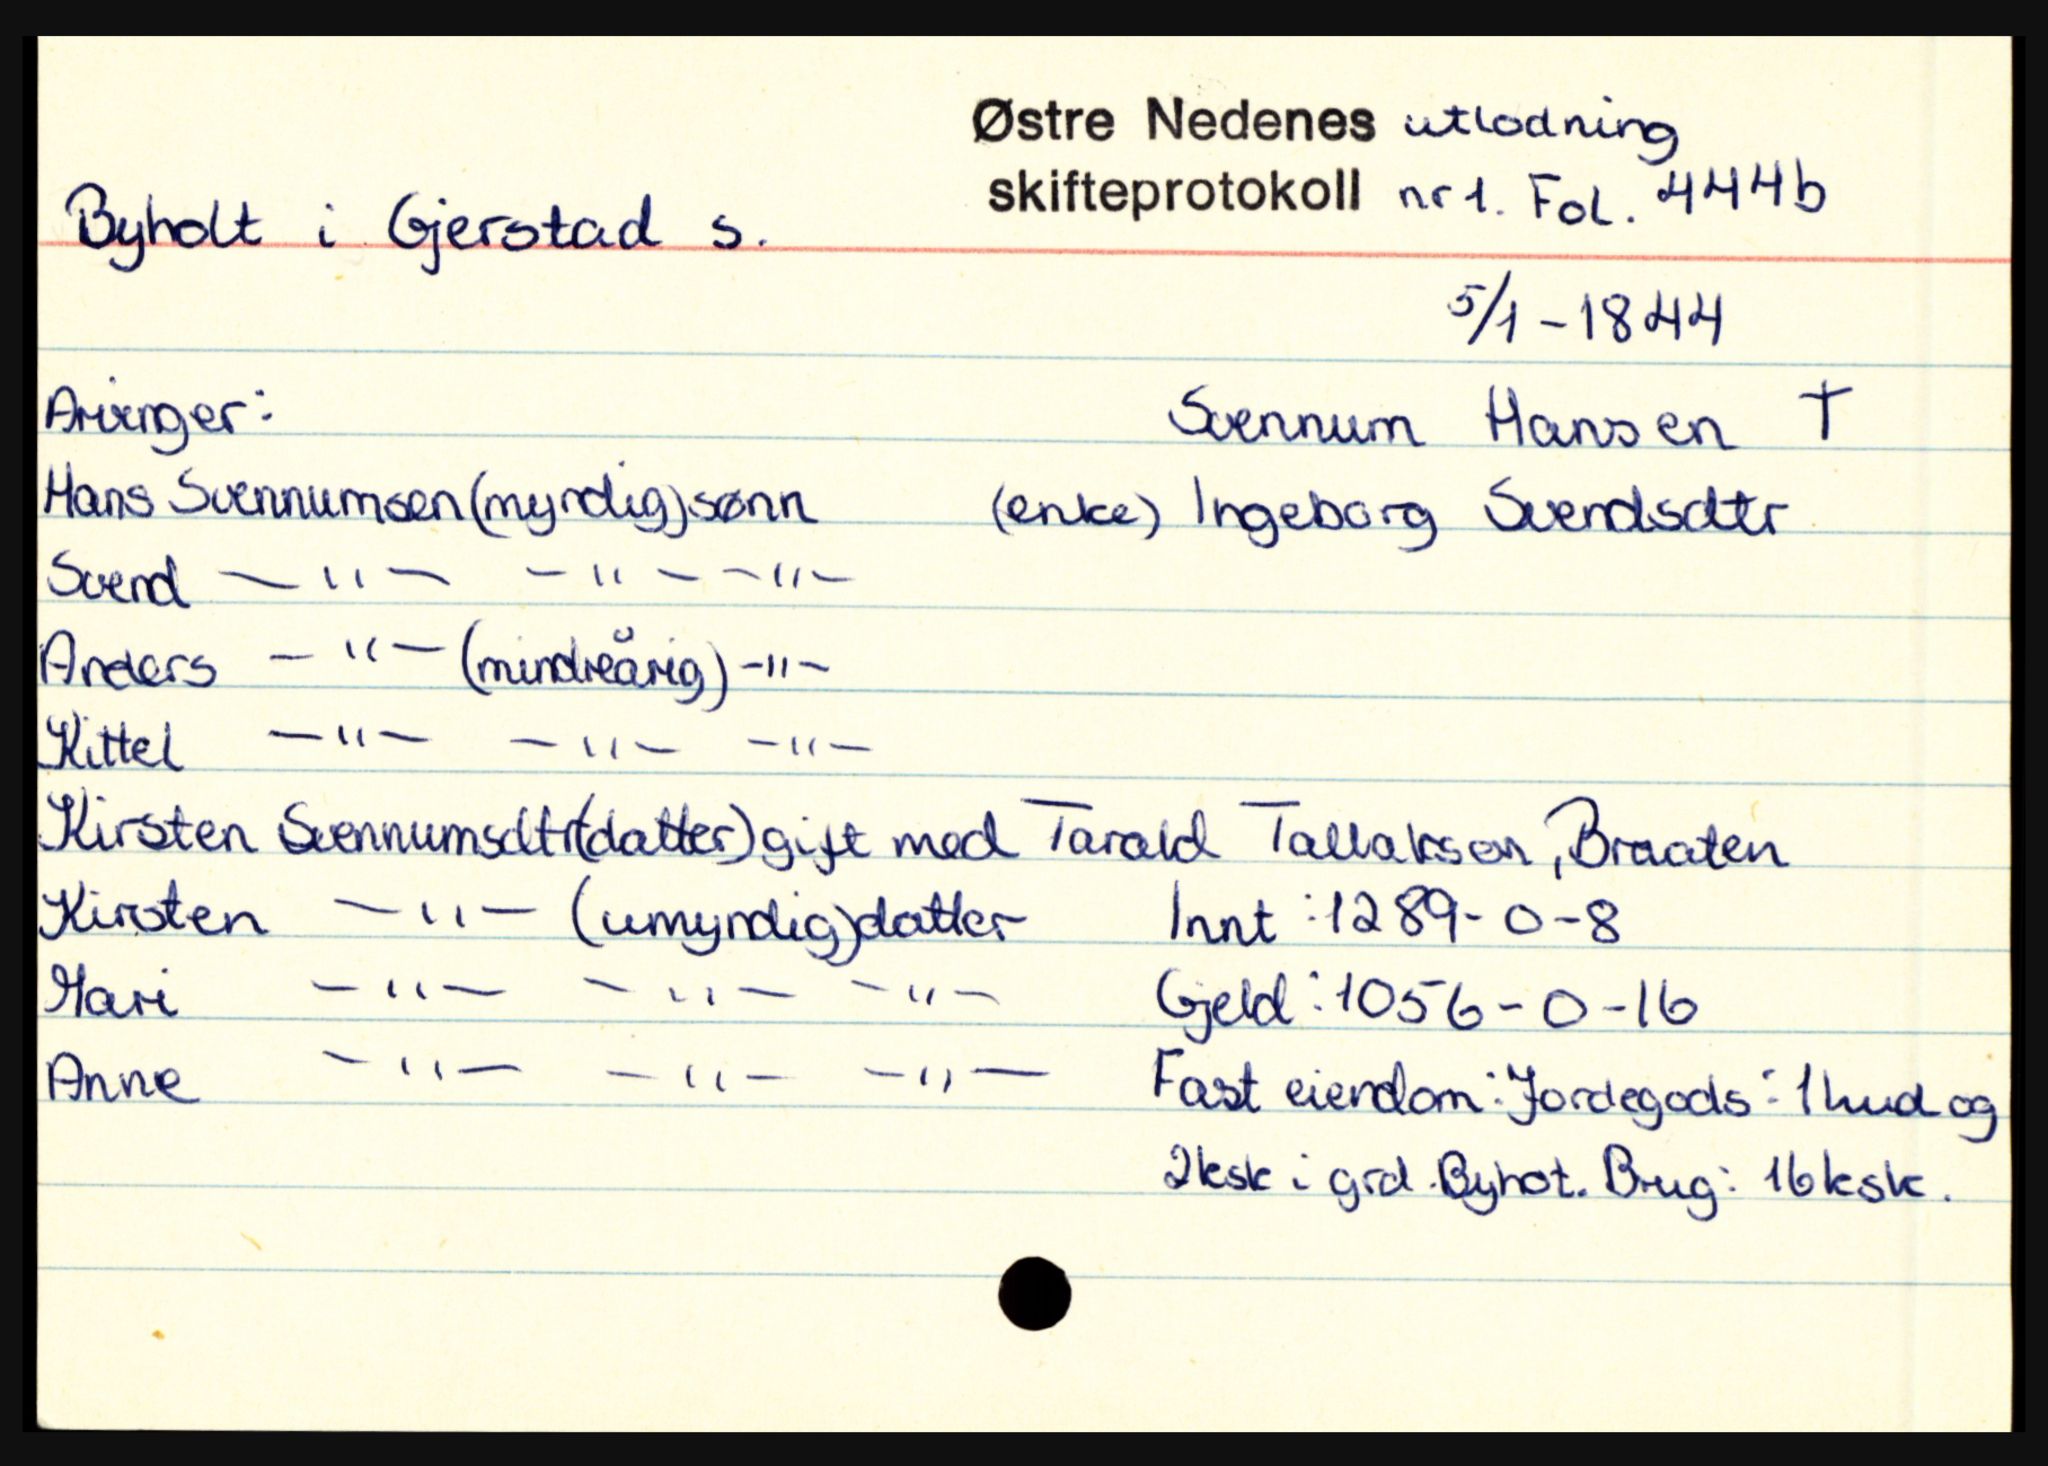 Østre Nedenes utlodning
skifteprotokoll nr 1. Fol. 444b
Byholt i Gjerstad s.
5/1 - 1844
Arvinger:
Svennum Hansen †
Hans Svennumsen (myndig) sønn
(enke) Ingeborg Svendsdtr
Svend — " — — " — — " —
Anders — " — (mindreårig) — " —
Kittel — " — — " — — " —
Kirsten Svennumsdtr (datter) gift med Tarald Tallaksen, Braaten
Kirsten — " — (umyndig) datter
Innt : 1289 - 0 - 8
Mari — " — — " — — " —
Gjeld : 1056 - 0 - 16
Anne — " — — " — — " —
Fast eiendom : Jordegods : 1 hud og
2 ksk i grd. Byhot. Brug : 16 ksk.